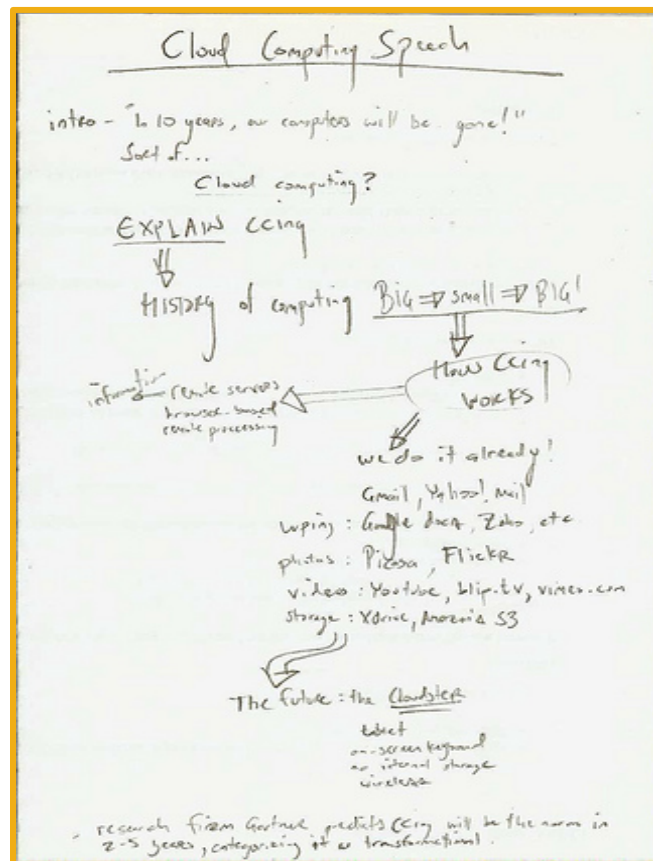 Cloud Computing Speech
intro - "In 10 years, our computers will be gone!"
Sort of...
Cloud computing?
EXPLAIN CCing
HISTORY of computing BIG ⇒ small ⇒ BIG!
How CCing
WORKS
information remote servers
browser-based
remote processing
we do it already!
Gmail, Yahoo! Mail
wping : Google docs, Zoho, etc
photos : Picasa, FlickR
videos : Youtube, blip.tv, vimeo.com
storage : Xdrive, Amazon S3
The future : the Cloudster
tablet
on-screen keyboard
no internal storage
wireless
- research firm Gartner predicts CCing will be the norm in
2-5 years, categorizing it as transformational.